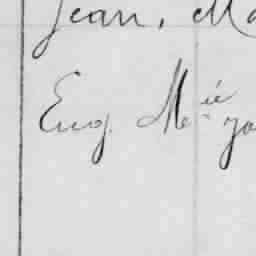 Jean, Ma
Eug. M.ie Jo